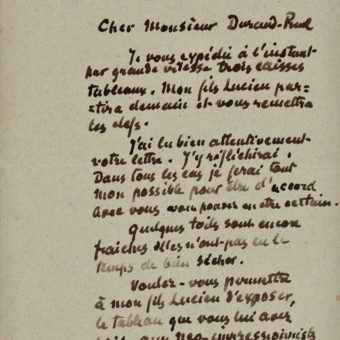 Cher Monsieur Durand-Ruel
Je vous expédie à l'instant
par grande vitesse trois caisses
tableaux. Mon fils Lucien par=
=tira demain et vous remettra
les clefs.
J'ai lu bien attentivement
votre lettre. J'y réfléchirai.
Dans tous les cas je ferai tout
mon possible pour être d'accord
avec vous vous pouvez en être certain.
Quelques toiles sont encore
fraiches elles n'ont pas eu le
temps de bien sécher.
Voulez-vous permettre
à mon fils Lucien d'exposer,
le tableau que vous lui avez
aux neo-impressionnistes